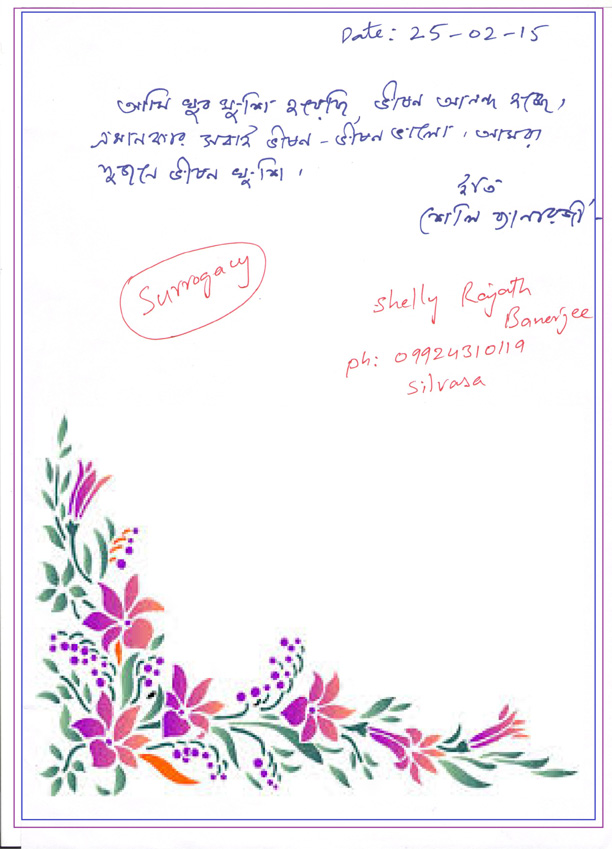 Date: 25-02-15
আমি খুব খুশি হয়েছি, ভীষন আনন্দ হচ্ছে,
এখানকার সবাই ভীষন - ভীষন ভালো। আমরা
দুজনে ভীষন খুশি।
ইতি
শেলি ব্যানার্জী -
Surrogacy
Shelly Rajath
Banerjee
ph: 09924310119
Silvasa